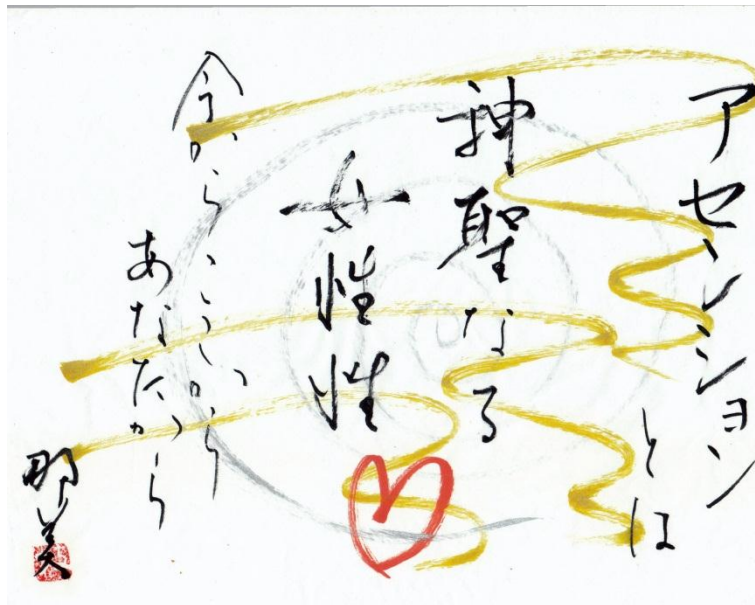 アセンション
とは
神聖なる
女性性
今から ここから
あなたから
那美